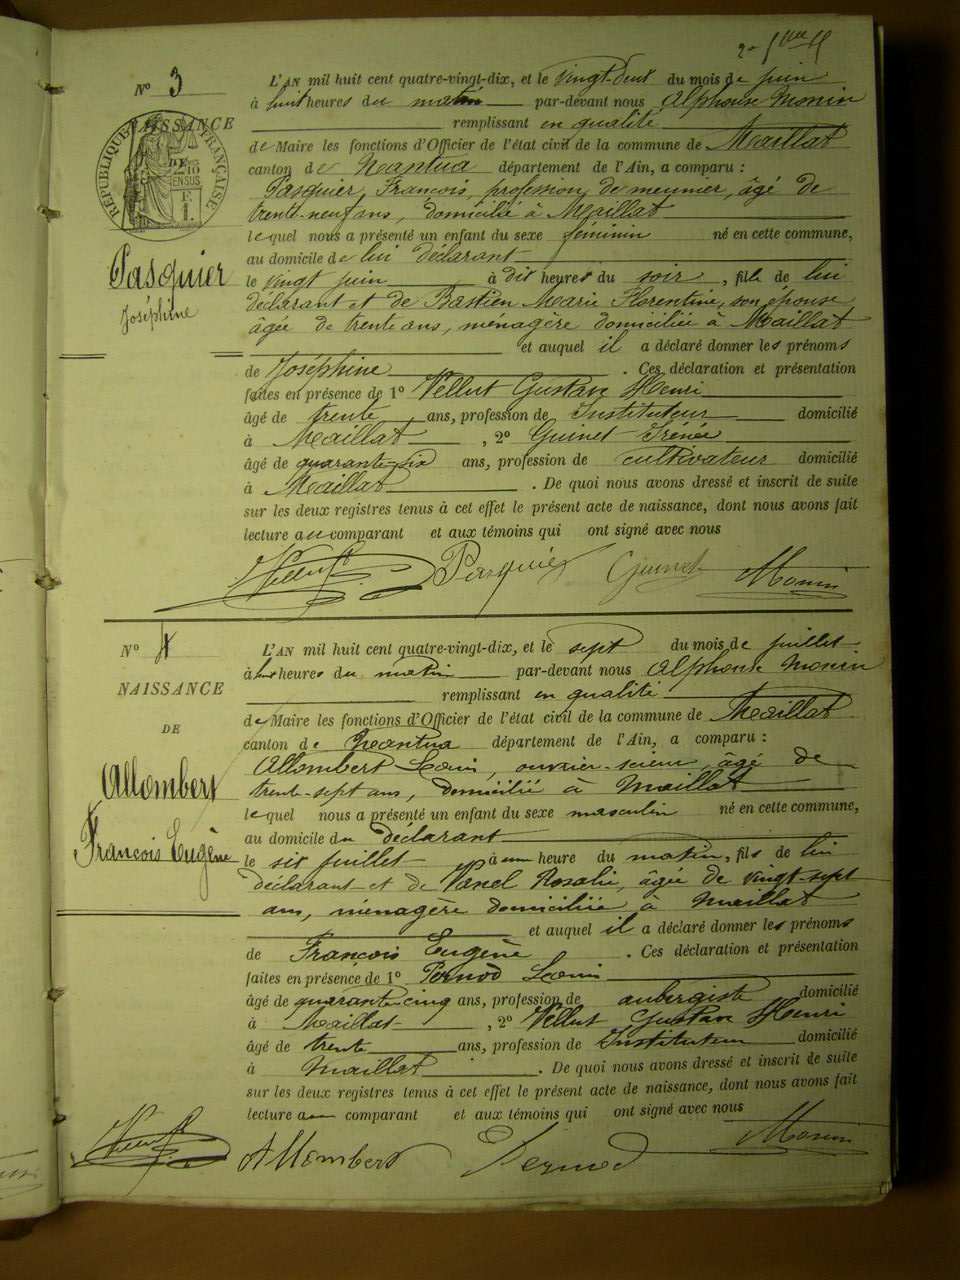 Nº 3
NAISSANCE
RÉPUBLIQUE FRANÇAISE
Pasquier
Joséphine
L'AN mil huit cent quatre-vingt-dix, et le vingt-deux du mois de juin
à huit heures du matin par-devant nous Alphonse Monin
remplissant en qualité
de Maire les fonctions d'Officier de l'état civil de la commune de Maillat
canton de Nantua département de l'Ain, a comparu :
Pasquier, François, profession de meunier, âgé de
trente-neuf ans, domicilié à Maillat
lequel nous a présenté un enfant du sexe féminin né en cette commune,
au domicile de lui déclarant
le vingt juin à dix heures du soir, fille de lui
déclarant et de Bastien Marie Florentine, son épouse
âgée de trente ans, ménagère domiciliée à Maillat
et auquel il a déclaré donner les prénoms
de Joséphine . Ces déclaration et présentation
faites en présence de 1º Vellut Gustave Henri
âgé de trente ans, profession de Instituteur domicilié
à Maillat , 2º Guinet Irénée
âgé de quarante-six ans, profession de cultivateur domicilié
à Maillat . De quoi nous avons dressé et inscrit de suite
sur les deux registres tenus à cet effet le présent acte de naissance, dont nous avons fait
lecture au comparant et aux témoins qui ont signé avec nous
Vellut Pasquier Guinet Monin
Nº 4
NAISSANCE
DE
Allombert
François Eugène
L'AN mil huit cent quatre-vingt-dix, et le sept du mois de juillet
à huit heures du matin par-devant nous Alphonse Monin
remplissant en qualité
de Maire les fonctions d'Officier de l'état civil de la commune de Maillat
canton de Nantua département de l'Ain, a comparu :
Allombert Louis, ouvrier-scieur, âgé de
trente-sept ans, domicilié à Maillat
lequel nous a présenté un enfant du sexe masculin né en cette commune,
au domicile du déclarant
le six juillet à une heure du matin, fils de lui
déclarant et de Vanel Rosalie, âgée de vingt-sept
ans, ménagère domiciliée à Maillat
et auquel il a déclaré donner les prénoms
de François Eugène . Ces déclaration et présentation
faites en présence de 1º Pernod Louis
âgé de quarante-cinq ans, profession de aubergiste domicilié
à Maillat , 2º Vellut Gustave Henri
âgé de trente ans, profession de Instituteur domicilié
à Maillat . De quoi nous avons dressé et inscrit de suite
sur les deux registres tenus à cet effet le présent acte de naissance, dont nous avons fait
lecture au comparant et aux témoins qui ont signé avec nous
Vellut Allombert Pernod Monin